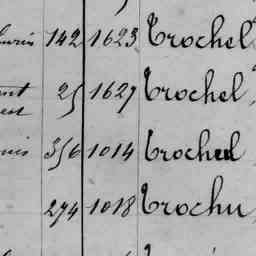 142 1623 Trochel
25 1627 Trochel
356 1014 Troched
274 1018 Trochu